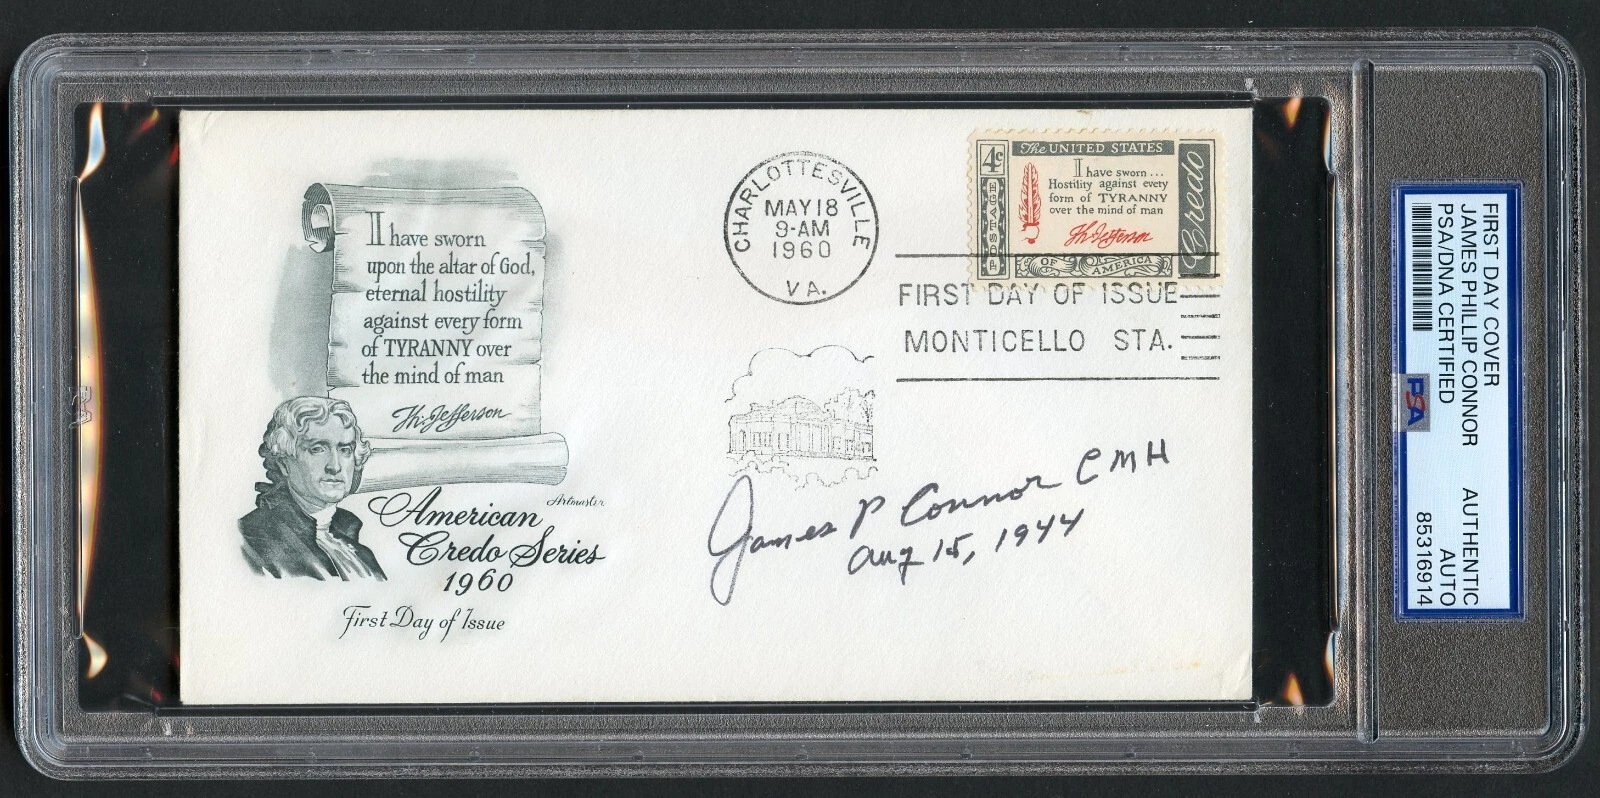 I have sworn
upon the altar of God,
eternal hostility
against every form
of TYRANNY over
the mind of man
Th: Jefferson
Artmaster
American
Credo Series
1960
First Day of Issue
CHARLOTTESVILLE
MAY 18
9-AM
1960
VA.
4c
The UNITED STATES
POSTAGE
I have sworn...
Hostility against every
form of TYRANNY
over the mind of man
Th: Jefferson
Credo
OF AMERICA
FIRST DAY OF ISSUE
MONTICELLO STA.
James P Connor CMH
Aug 15, 1944
FIRST DAY COVER
JAMES PHILLIP CONNOR AUTHENTIC
PSA/DNA CERTIFIED AUTO
85316914
PSA